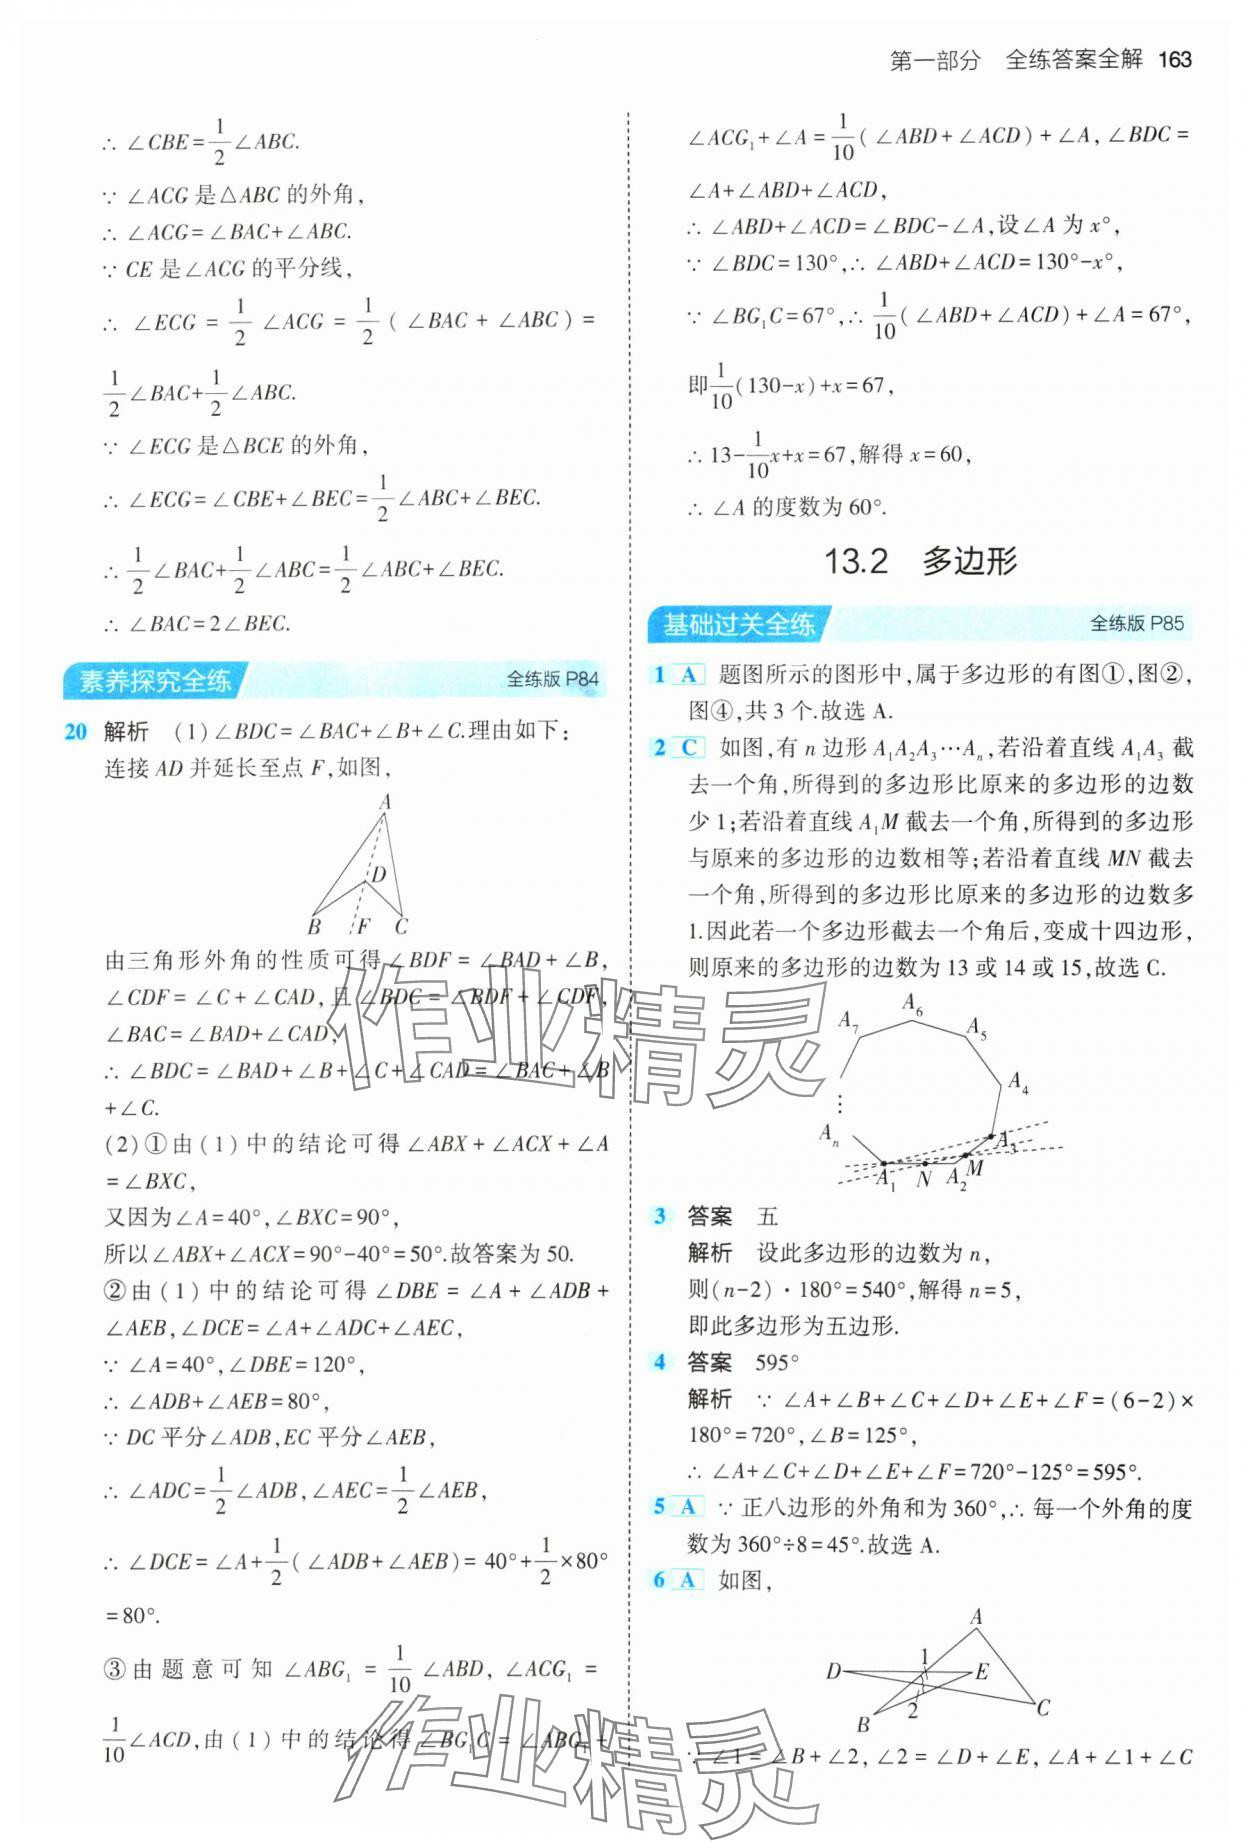 第一部分 全练答案全解 163
∴ ∠CBE=1/2∠ABC.
∵ ∠ACG是△ABC的外角,
∴ ∠ACG=∠BAC+∠ABC.
∵ CE是∠ACG的平分线,
∴ ∠ECG=1/2∠ACG=1/2(∠BAC+∠ABC)=
1/2∠BAC+1/2∠ABC.
∵ ∠ECG是△BCE的外角,
∴ ∠ECG=∠CBE+∠BEC=1/2∠ABC+∠BEC.
∴ 1/2∠BAC+1/2∠ABC=1/2∠ABC+∠BEC.
∴ ∠BAC=2∠BEC.
素养探究全练 全练版 P84
20 解析 (1)∠BDC=∠BAC+∠B+∠C.理由如下:
连接AD并延长至点F,如图,
A
D
B F C
由三角形外角的性质可得∠BDF=∠BAD+∠B,
∠CDF=∠C+∠CAD,且∠BDC=∠BDF+∠CDF,
∠BAC=∠BAD+∠CAD,
∴ ∠BDC=∠BAD+∠B+∠C+∠CAD=∠BAC+∠B
+∠C.
(2)①由(1)中的结论可得∠ABX+∠ACX+∠A
=∠BXC,
又因为∠A=40°,∠BXC=90°,
所以∠ABX+∠ACX=90°-40°=50°.故答案为50.
②由(1)中的结论可得∠DBE=∠A+∠ADB+
∠AEB,∠DCE=∠A+∠ADC+∠AEC,
∵ ∠A=40°,∠DBE=120°,
∴ ∠ADB+∠AEB=80°,
∵ DC平分∠ADB,EC平分∠AEB,
∴ ∠ADC=1/2∠ADB,∠AEC=1/2∠AEB,
∴ ∠DCE=∠A+1/2(∠ADB+∠AEB)=40°+1/2×80°
=80°.
③由题意可知∠ABG₁=1/10∠ABD,∠ACG₁=
1/10∠ACD,由(1)中的结论得∠BG₁C=∠ABG₁+
∠ACG₁+∠A=1/10(∠ABD+∠ACD)+∠A,∠BDC=
∠A+∠ABD+∠ACD,
∴ ∠ABD+∠ACD=∠BDC-∠A,设∠A为x°,
∵ ∠BDC=130°,∴ ∠ABD+∠ACD=130°-x°,
∵ ∠BG₁C=67°,∴ 1/10(∠ABD+∠ACD)+∠A=67°,
即1/10(130-x)+x=67,
∴ 13-1/10x+x=67,解得x=60,
∴ ∠A的度数为60°.
13.2 多边形
基础过关全练 全练版 P85
1 A 题图所示的图形中,属于多边形的有图①,图②,
图④,共3个.故选A.
2 C 如图,有n边形A₁A₂A₃…Aₙ,若沿着直线A₁A₃截
去一个角,所得到的多边形比原来的多边形的边数
少1;若沿着直线A₁M截去一个角,所得到的多边形
与原来的多边形的边数相等;若沿着直线MN截去
一个角,所得到的多边形比原来的多边形的边数多
1.因此若一个多边形截去一个角后,变成十四边形,
则原来的多边形的边数为13或14或15,故选C.
A₆
A₇ A₅
A₄
⋮
Aₙ A₃
A₁ N A₂ M
3 答案 五
解析 设此多边形的边数为n,
则(n-2)·180°=540°,解得n=5,
即此多边形为五边形.
4 答案 595°
解析 ∵ ∠A+∠B+∠C+∠D+∠E+∠F=(6-2)×
180°=720°,∠B=125°,
∴ ∠A+∠C+∠D+∠E+∠F=720°-125°=595°.
5 A ∵ 正八边形的外角和为360°,∴ 每一个外角的度
数为360°÷8=45°.故选A.
6 A 如图,
A
1
D E
2 C
B
∵ ∠1=∠B+∠2,∠2=∠D+∠E,∠A+∠1+∠C
作业精灵
作业精灵